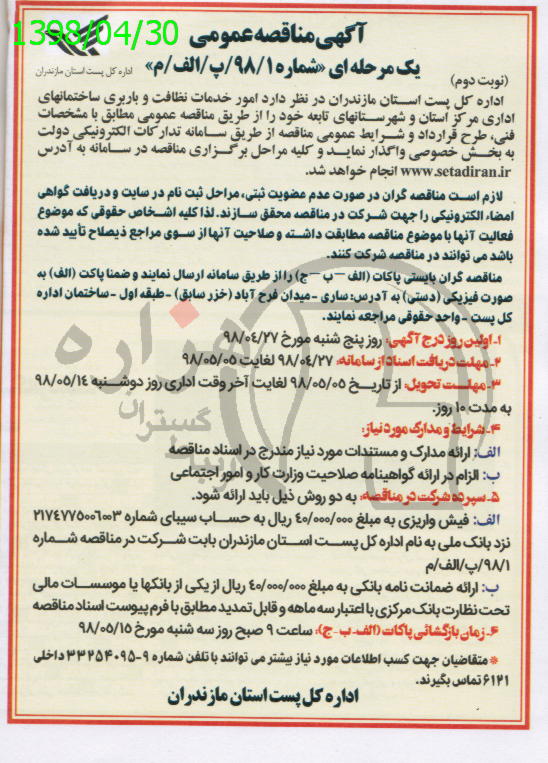 1398/04/30
آگهی مناقصه عمومی
یک مرحله ای «شماره ۹۸/۱/پ/الف/م»
اداره کل پست استان مازندران
(نوبت دوم)
اداره کل پست استان مازندران در نظر دارد امور خدمات نظافت و باربری ساختمانهای
اداری مرکز استان و شهرستانهای تابعه خود را از طریق مناقصه عمومی مطابق با مشخصات
فنی، طرح قرارداد و شرایط عمومی مناقصه از طریق سامانه تدارکات الکترونیکی دولت
به بخش خصوصی واگذار نماید و کلیه مراحل برگزاری مناقصه در سامانه به آدرس
www.setadiran.ir انجام خواهد شد.
لازم است مناقصه گران در صورت عدم عضویت ثبتی، مراحل ثبت نام در سایت و دریافت گواهی
امضاء الکترونیکی را جهت شرکت در مناقصه محقق سازند. لذا کلیه اشخاص حقوقی که موضوع
فعالیت آنها با موضوع مناقصه مطابقت داشته و صلاحیت آنها از سوی مراجع ذیصلاح تأیید شده
باشد می توانند در مناقصه شرکت کنند.
مناقصه گران بایستی پاکات (الف – ب – ج) را از طریق سامانه ارسال نمایند و ضمنا پاکت (الف) به
صورت فیزیکی (دستی) به آدرس: ساری - میدان فرح آباد (خزر سابق) - طبقه اول - ساختمان اداره
کل پست - واحد حقوقی مراجعه نمایند.
۱- اولین روز درج آگهی: روز پنج شنبه مورخ ۹۸/۰۴/۲۷
۲- مهلت دریافت اسناد از سامانه: ۹۸/۰۴/۲۷ لغایت ۹۸/۰۵/۰۵
۳- مهلت تحویل: از تاریخ ۹۸/۰۵/۰۵ لغایت آخر وقت اداری روز دوشنبه ۹۸/۰۵/۱۴
به مدت ۱۰ روز.
۴- شرایط و مدارک مورد نیاز:
الف: ارائه مدارک و مستندات مورد نیاز مندرج در اسناد مناقصه
ب: الزام در ارائه گواهینامه صلاحیت وزارت کار و امور اجتماعی
۵- سپرده شرکت در مناقصه: به دو روش ذیل باید ارائه شود.
الف: فیش واریزی به مبلغ ۴۰/۰۰۰/۰۰۰ ریال به حساب سیبای شماره ۲۱۷۴۷۷۵۰۰۶۰۰۳
نزد بانک ملی به نام اداره کل پست استان مازندران بابت شرکت در مناقصه شماره
۹۸/۱/پ/الف/م
ب: ارائه ضمانت نامه بانکی به مبلغ ۴۰/۰۰۰/۰۰۰ ریال از یکی از بانکها یا موسسات مالی
تحت نظارت بانک مرکزی با اعتبار سه ماهه و قابل تمدید مطابق با فرم پیوست اسناد مناقصه
۶- زمان بازگشائی پاکات (الف- ب- ج): ساعت ۹ صبح روز سه شنبه مورخ ۹۸/۰۵/۱۵
* متقاضیان جهت کسب اطلاعات مورد نیاز بیشتر می توانند با تلفن شماره ۹-۳۳۲۵۴۰۹۵ داخلی
۶۱۲۱ تماس بگیرند.
اداره کل پست استان مازندران
هزاره
گستران